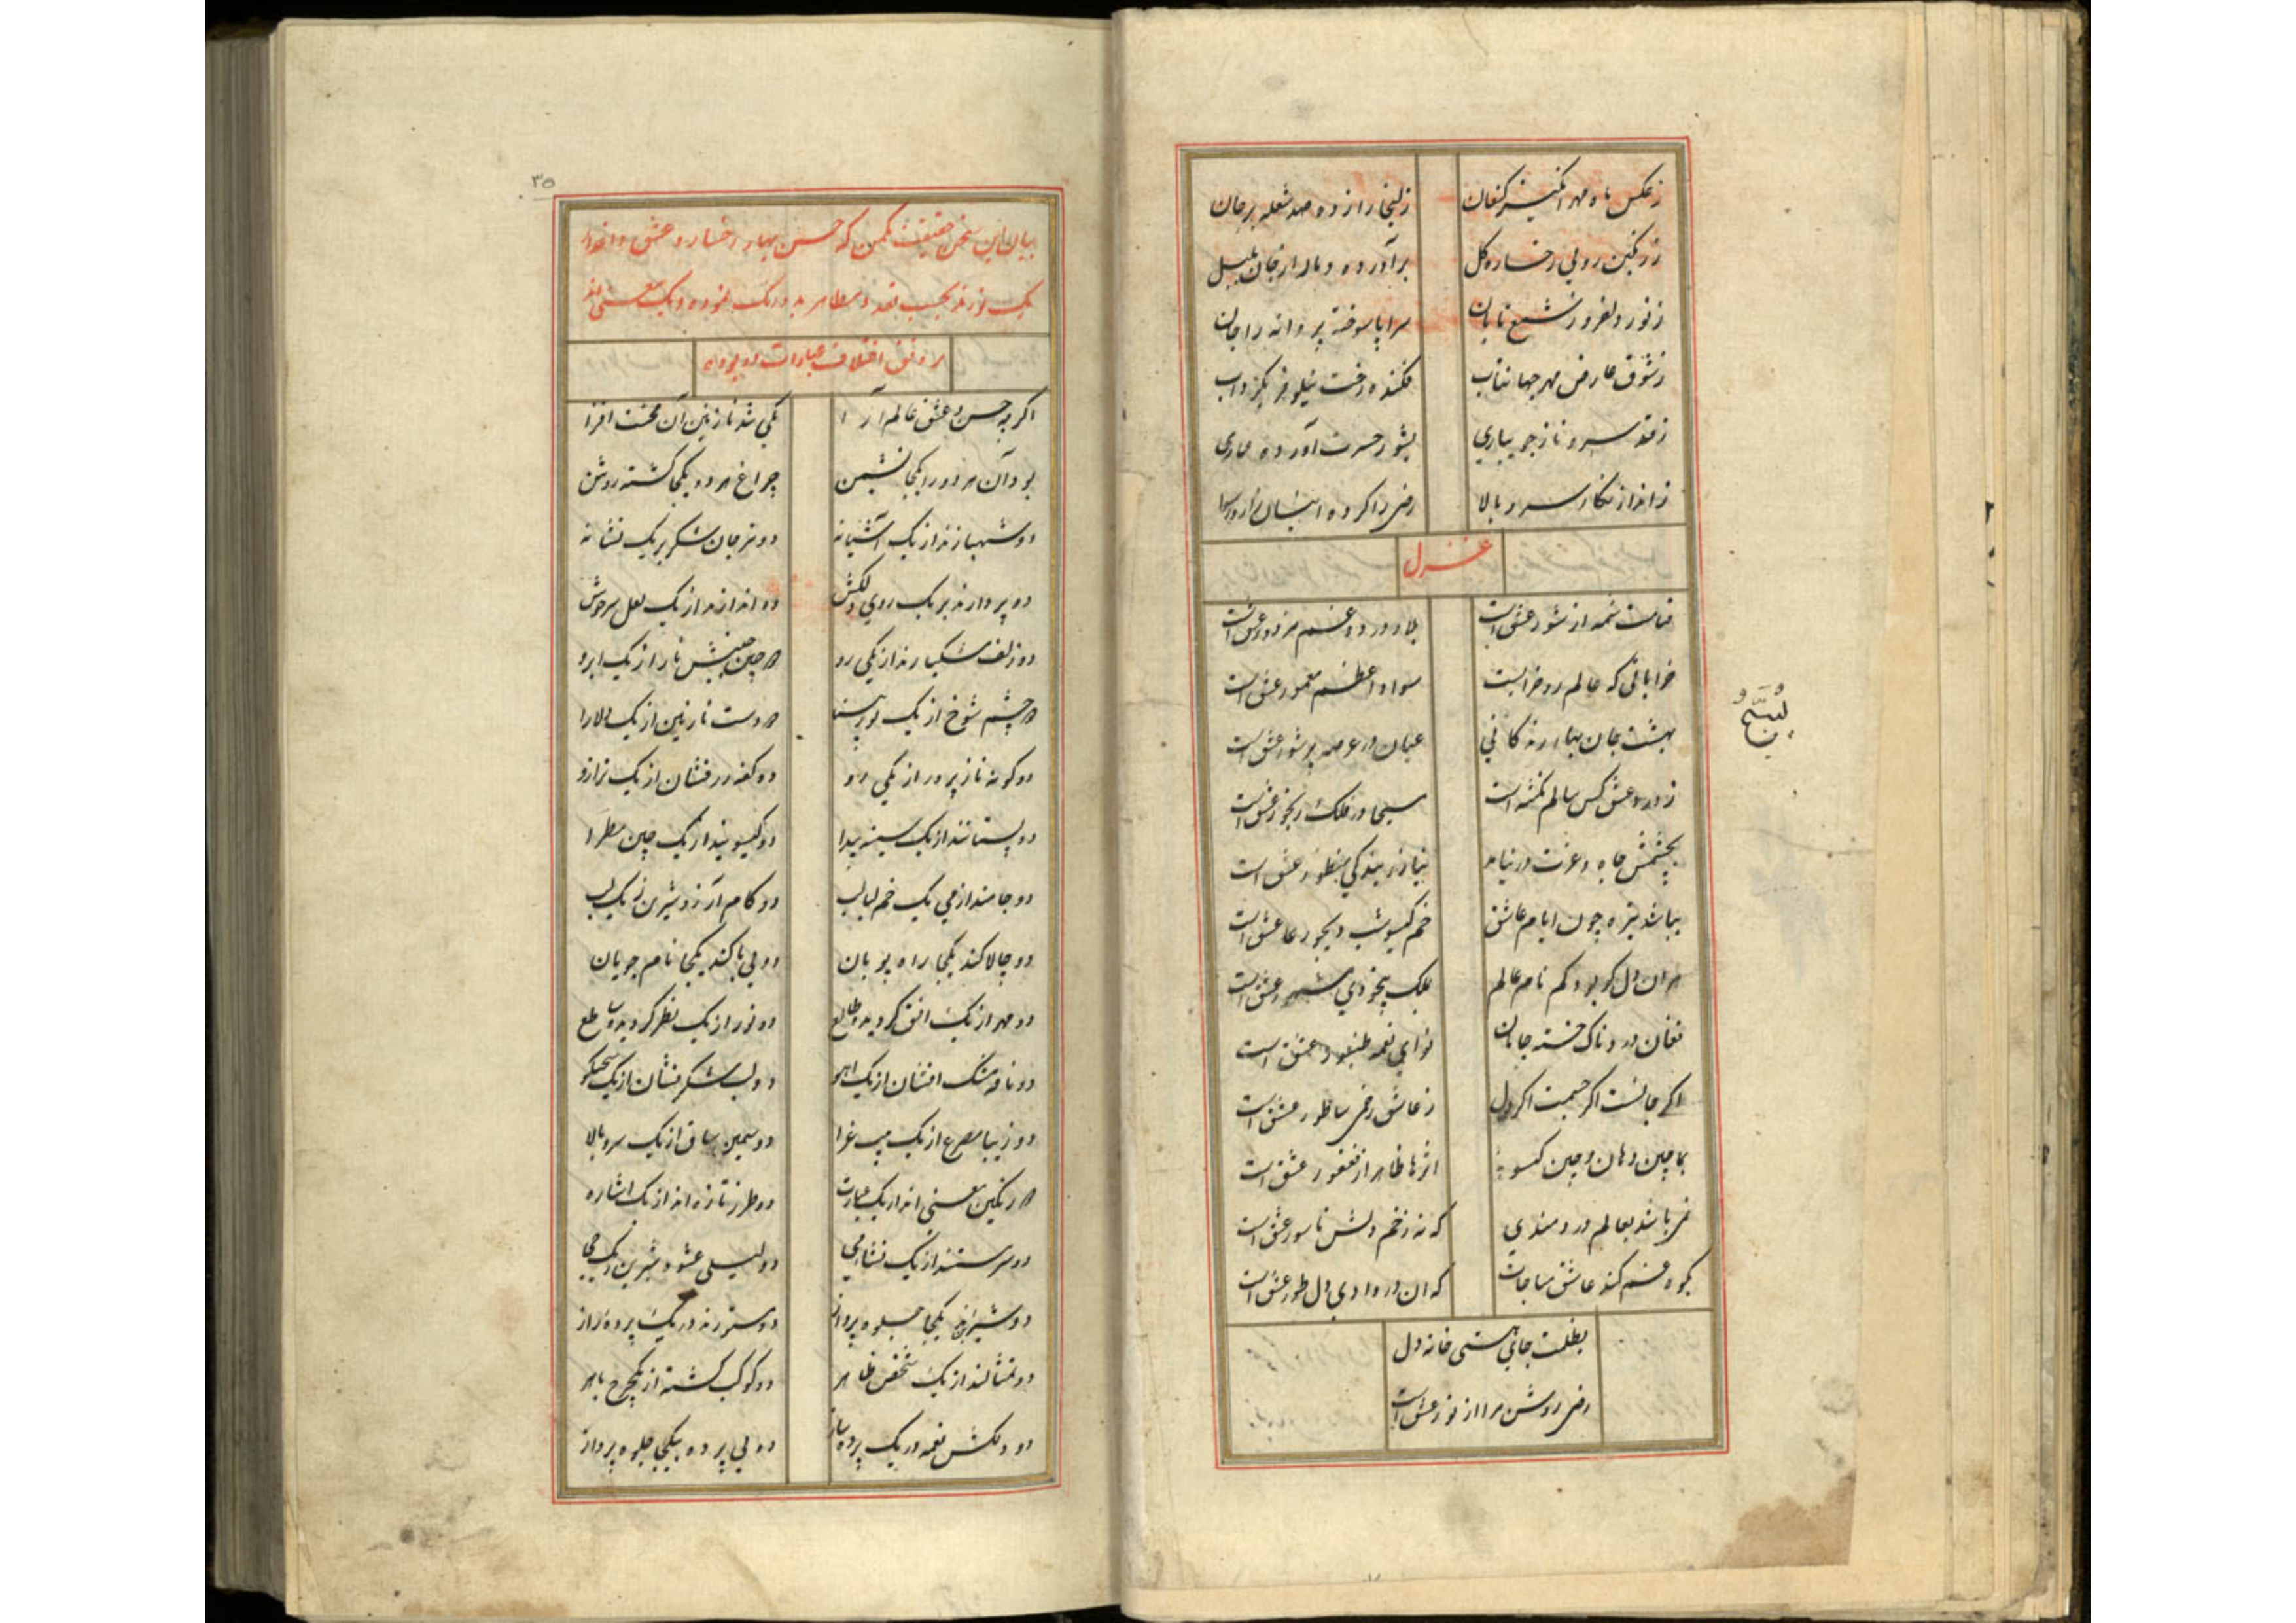 ز عکس ماه مهر انگیز کنعان زلیخا را زده صد شعله بر جان
ز رنگین رویی رخساره گل برآورده دمار از جان بلبل
ز نور دلفروز شمع تابان سراپا سوخته پروانه را جان
ز شوق عارض مهر جهانتاب فکنده رخت نیلوفر بگرداب
ز قد سرو ناز جویباری بشور حسرت آورده
ز انداز نگار سرو بالا رضی را کرده
غزل
قیامت شمه از شور عشق است بلا و درد و غم مزدور عشق است
خراباتی که عالم رو خرابست سواد اعظم معمور عشق است
بهشت جان بهار زندگانی عیان در عرصه پرشور عشق است
ز درد عشق کس سالم نگشته است مسیحا در فلک رنجور عشق است
بچشمش جاه و عزت در نیاید نیاز و بندگی منظور عشق است
بباشد تیره چون ایام عاشق خم گیسو شب دیجور عشق است
هر آن دل کو بود گم نام عالم بملک بیخودی مشهور عشق است
فغان دردناک خسته جانان نوای نغمه طنبور عشق است
اگر جانست اگر جسمست اگر دل ز عاشق رضی عشق است
بماچین دهان و چین گیسو اثرها ظاهر از فغفور عشق است
نمی باشد بعالم دردمندی که نه زخم دلش ناسور عشق است
بکوه غم کند عاشق مناجات که آن در وادی دل طور عشق است
بظلمت جای هستی خانه دل
رضی روشن مرا از نور عشق است
۳۵
بیان این سخن حقیقت که حسن بهار رخسار و عشق
یک نورند بحسب تعدد مظاهر
رونق اختلاف عبارات
اگر چه حسن و عشق عالم آرا یکی شد نازنین آن محنت افزا
بود آن هر دو را یکجا نشیمن چراغ هر دو یکجا گشته روشن
دو شهبازند از یک آشیانه دو مرجان شکر بر یک نشانه
دو پردازند بر یک روی دلکش دو اندازند از یک لعل سرخوش
دو زلف مشکبارند از یکی رو دو چین جنبش نما از یک ابرو
دو چشم شوخ از یک دو دست نازنین از یک دلارا
دو گونه نازپرور از یکی رو دو کفه درفشان از یک ترازو
دو پستانند از یک سینه پیدا دو گیسویند از یک چین مطرا
دو جامند از می یک خم لبالب دو کام آرزو شیرین ز یک لب
دو چالاکند یکجا راه پویان دو بی باکند یکجا نام جویان
دو مهر از یک افق گردیده طالع دو نور از یک نظر گردیده ساطع
دو نافه مشک افشان از یک آهو دو لب شکر فشان از یک سخنگو
دو زیبا مصرع از یک بیت غرا دو سیمین ساق از یک سرو بالا
دو رنگین معنی اند از یک عبارت دو طرز تازه اند از یک اشاره
دو سرمستند از یک نشأ می دو لیلی عشوه شیرین
دو یکجا جلوه پرداز دو مستورند در یک پرده راز
دو تمثالند از یک شخص ظاهر دو کوکب گشته از یک چرخ باهر
دو دلکش نغمه در یک پرده ساز دو بی پرده بیکجا جلوه پرداز